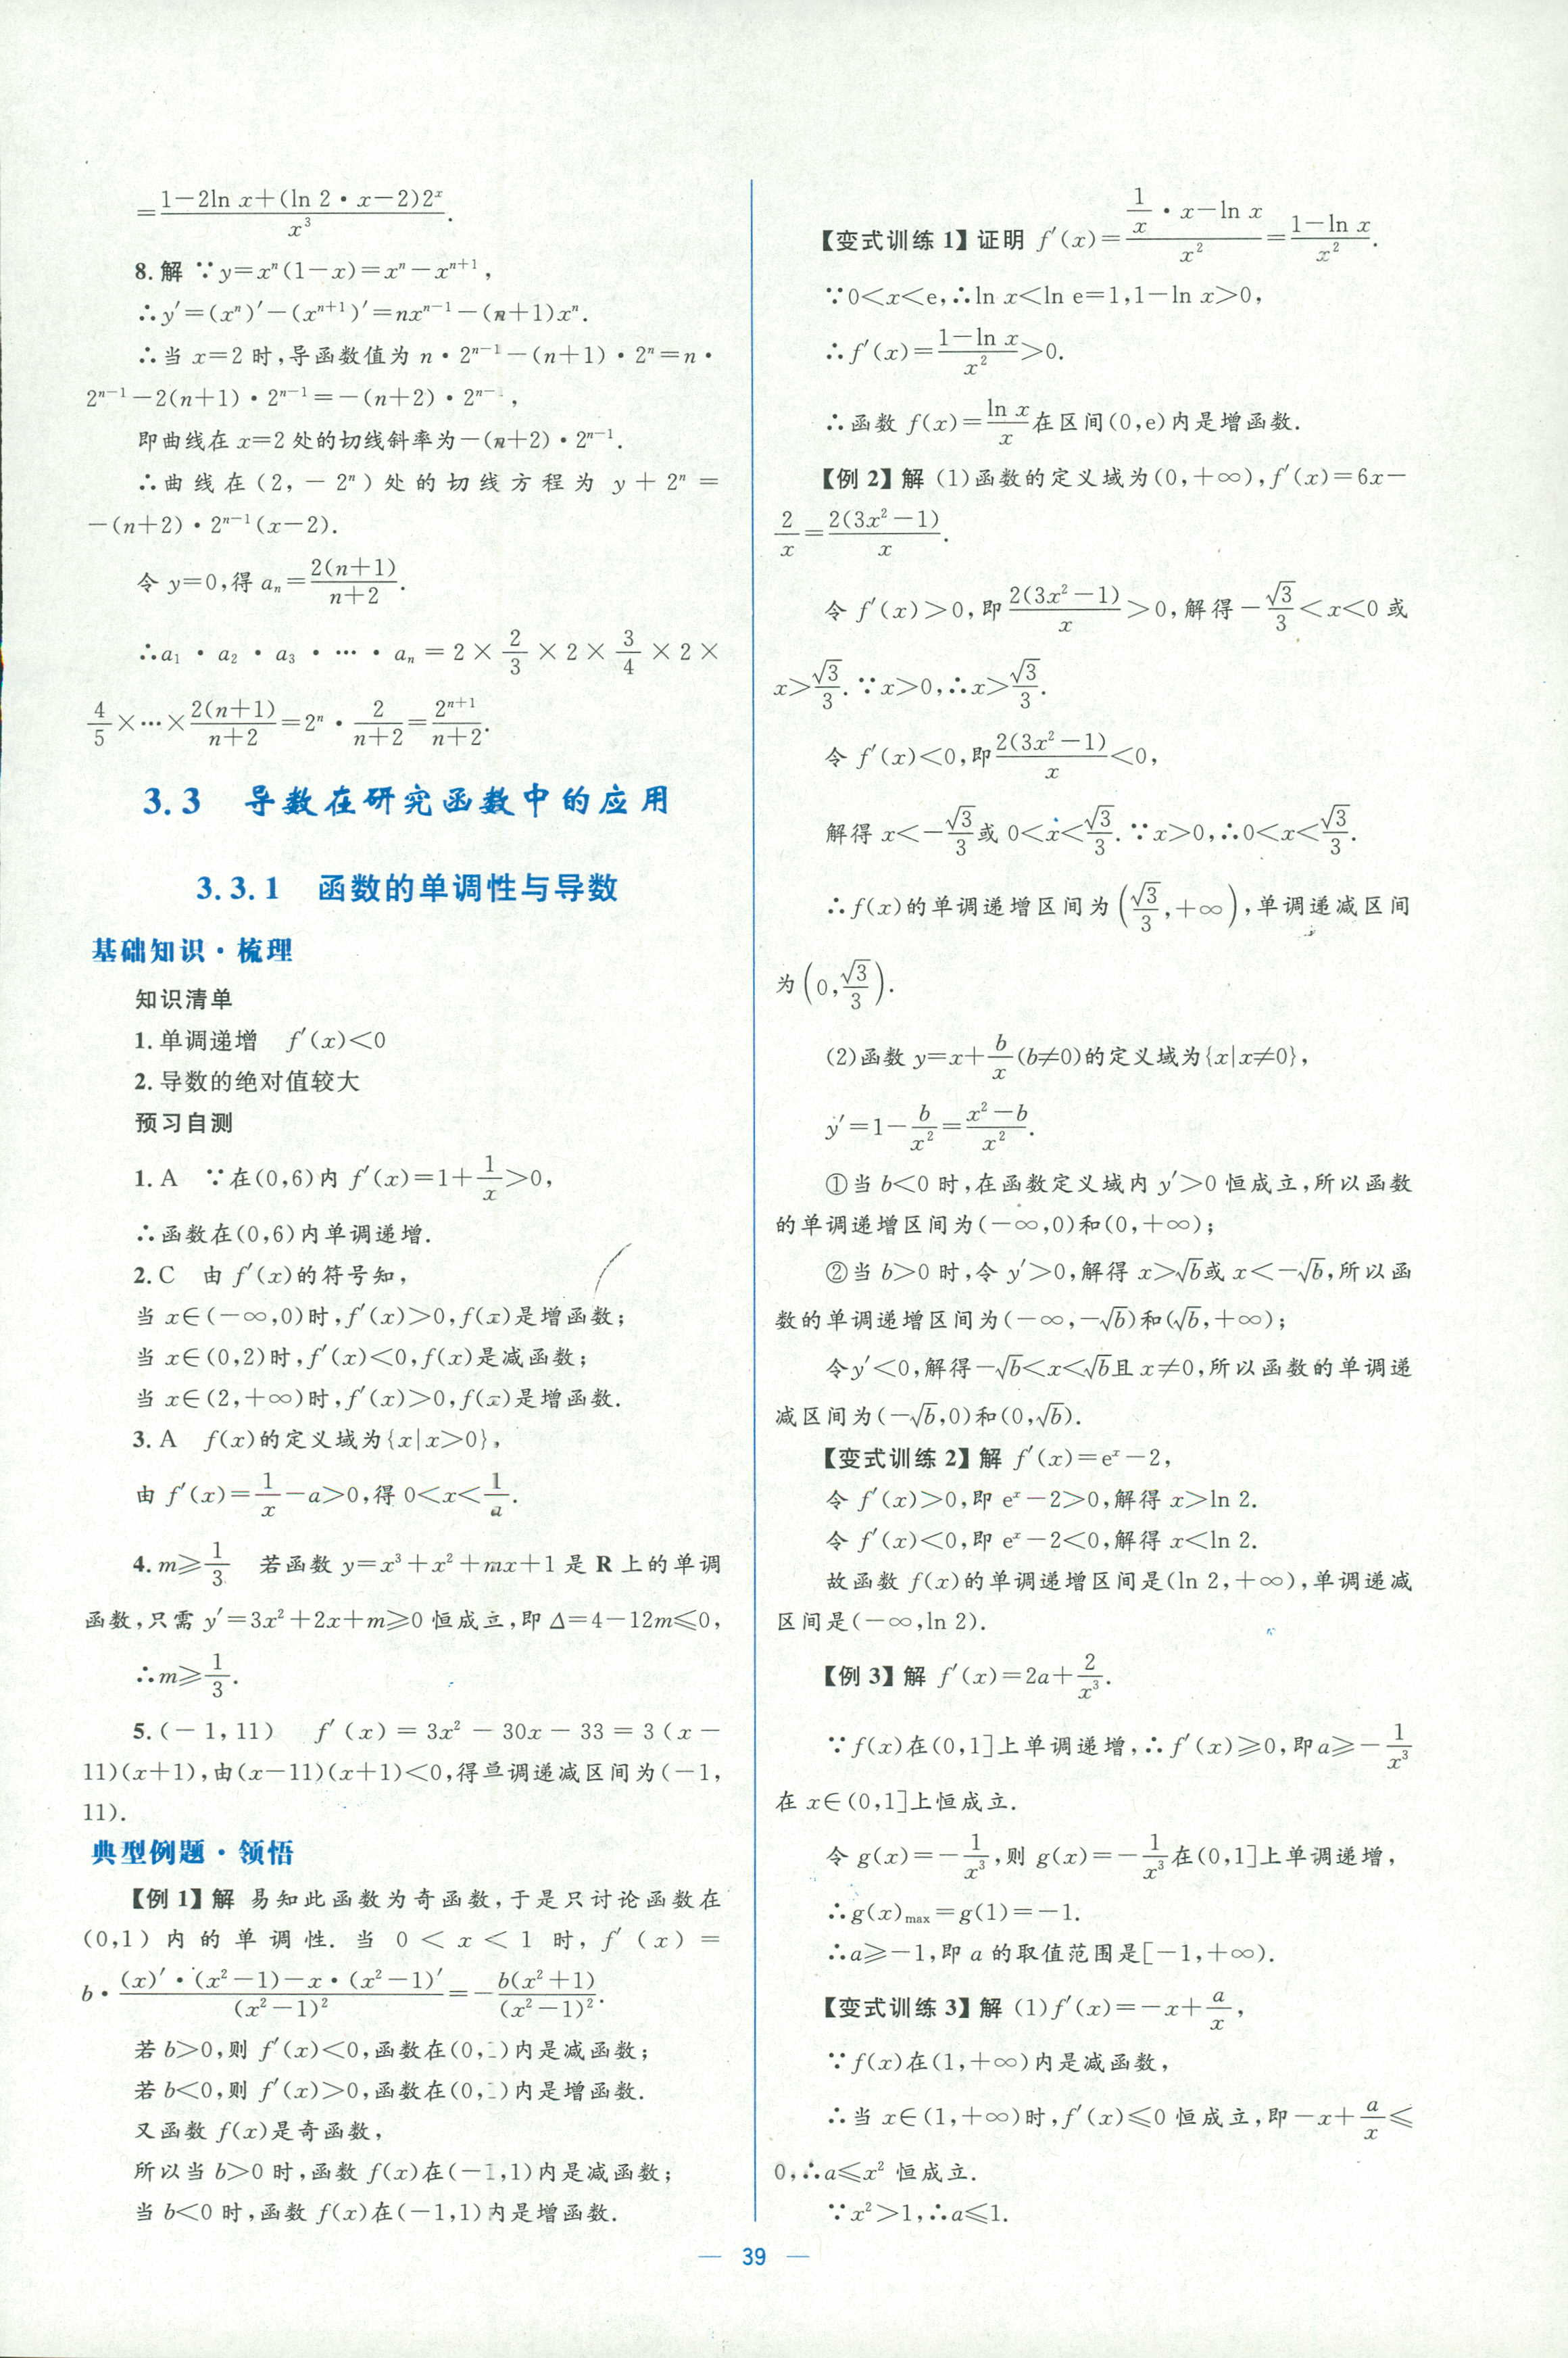 =\frac{1-2\ln x+(\ln 2·x-2)2^x}{x^3}.
8.解 ∵y=x^n(1-x)=x^n-x^{n+1},
∴y'=(x^n)'-(x^{n+1})'=nx^{n-1}-(n+1)x^n.
∴当 x=2 时,导函数值为 n·2^{n-1}-(n+1)·2^n=n·
2^{n-1}-2(n+1)·2^{n-1}=-(n+2)·2^{n-},
即曲线在 x=2 处的切线斜率为-(n+2)·2^{n-1}.
∴曲线在(2,-2^n)处的切线方程为 y+2^n=
-(n+2)·2^{n-1}(x-2).
令 y=0,得 a_n=\frac{2(n+1)}{n+2}.
∴a_1·a_2·a_3·…·a_n=2×\frac{2}{3}×2×\frac{3}{4}×2×
\frac{4}{5}×…×\frac{2(n+1)}{n+2}=2^n·\frac{2}{n+2}=\frac{2^{n+1}}{n+2}.
3.3 导数在研究函数中的应用
3.3.1 函数的单调性与导数
基础知识·梳理
知识清单
1.单调递增 f'(x)<0
2.导数的绝对值较大
预习自测
1.A ∵在(0,6)内 f'(x)=1+\frac{1}{x}>0,
∴函数在(0,6)内单调递增.
2.C 由 f'(x)的符号知,
当 x∈(-∞,0)时,f'(x)>0,f(x)是增函数;
当 x∈(0,2)时,f'(x)<0,f(x)是减函数;
当 x∈(2,+∞)时,f'(x)>0,f(x)是增函数.
3.A f(x)的定义域为{x|x>0},
由 f'(x)=\frac{1}{x}-a>0,得 0<x<\frac{1}{a}.
4.m≥\frac{1}{3} 若函数 y=x^3+x^2+mx+1 是 R 上的单调
函数,只需 y'=3x^2+2x+m≥0 恒成立,即 Δ=4-12m≤0,
∴m≥\frac{1}{3}.
5.(-1,11) f'(x)=3x^2-30x-33=3(x-
11)(x+1),由(x-11)(x+1)<0,得单调递减区间为(-1,
11).
典型例题·领悟
【例 1】解 易知此函数为奇函数,于是只讨论函数在
(0,1)内的单调性.当 0<x<1 时,f'(x)=
b·\frac{(x)'·(x^2-1)-x·(x^2-1)'}{(x^2-1)^2}=-\frac{b(x^2+1)}{(x^2-1)^2}.
若 b>0,则 f'(x)<0,函数在(0,)内是减函数;
若 b<0,则 f'(x)>0,函数在(0,)内是增函数.
又函数 f(x)是奇函数,
所以当 b>0 时,函数 f(x)在(-1,1)内是减函数;
当 b<0 时,函数 f(x)在(-1,1)内是增函数.
【变式训练 1】证明 f'(x)=\frac{\frac{1}{x}·x-\ln x}{x^2}=\frac{1-\ln x}{x^2}.
∵0<x<e,∴ln x<ln e=1,1-ln x>0,
∴f'(x)=\frac{1-\ln x}{x^2}>0.
∴函数 f(x)=\frac{\ln x}{x}在区间(0,e)内是增函数.
【例 2】解 (1)函数的定义域为(0,+∞),f'(x)=6x-
\frac{2}{x}=\frac{2(3x^2-1)}{x}.
令 f'(x)>0,即\frac{2(3x^2-1)}{x}>0,解得-\frac{\sqrt{3}}{3}<x<0 或
x>\frac{\sqrt{3}}{3}.∵x>0,∴x>\frac{\sqrt{3}}{3}.
令 f'(x)<0,即\frac{2(3x^2-1)}{x}<0,
解得 x<-\frac{\sqrt{3}}{3}或 0<x<\frac{\sqrt{3}}{3}.∵x>0,∴0<x<\frac{\sqrt{3}}{3}.
∴f(x)的单调递增区间为(\frac{\sqrt{3}}{3},+∞),单调递减区间
为(0,\frac{\sqrt{3}}{3}).
(2)函数 y=x+\frac{b}{x}(b≠0)的定义域为{x|x≠0},
y'=1-\frac{b}{x^2}=\frac{x^2-b}{x^2}.
①当 b<0 时,在函数定义域内 y'>0 恒成立,所以函数
的单调递增区间为(-∞,0)和(0,+∞);
②当 b>0 时,令 y'>0,解得 x>√b或 x<-√b,所以函
数的单调递增区间为(-∞,-√b)和(√b,+∞);
令y'<0,解得-√b<x<√b且 x≠0,所以函数的单调递
减区间为(-√b,0)和(0,√b).
【变式训练 2】解 f'(x)=e^x-2,
令 f'(x)>0,即 e^x-2>0,解得 x>ln 2.
令 f'(x)<0,即 e^x-2<0,解得 x<ln 2.
故函数 f(x)的单调递增区间是(ln 2,+∞),单调递减
区间是(-∞,ln 2).
【例 3】解 f'(x)=2a+\frac{2}{x^3}.
∵f(x)在(0,1]上单调递增,∴f'(x)≥0,即a≥-\frac{1}{x^3}
在 x∈(0,1]上恒成立.
令 g(x)=-\frac{1}{x^3},则 g(x)=-\frac{1}{x^3}在(0,1]上单调递增,
∴g(x)_{max}=g(1)=-1.
∴a≥-1,即 a 的取值范围是[-1,+∞).
【变式训练 3】解 (1)f'(x)=-x+\frac{a}{x},
∵f(x)在(1,+∞)内是减函数,
∴当 x∈(1,+∞)时,f'(x)≤0 恒成立,即-x+\frac{a}{x}≤
0,∴a≤x^2 恒成立.
∵x^2>1,∴a≤1.
— 39 —